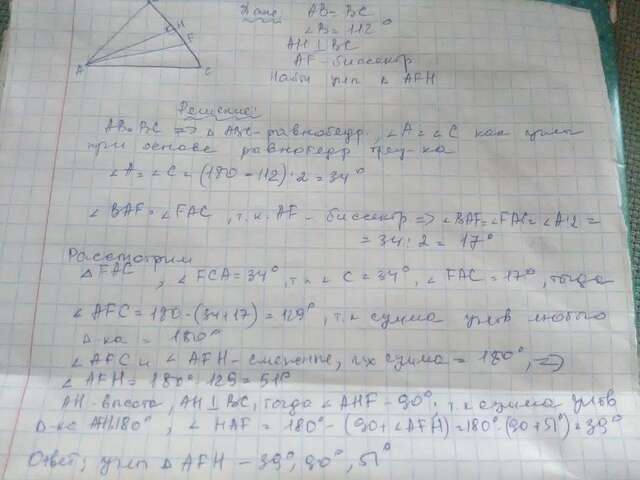 Дано: AB = BC
∠B = 112°
AH ⊥ BC
AF - биссектр
Найти углы Δ AFH
A
H
F
C
Решение:
AB = BC => Δ ABC - равнобедр, ∠A = ∠C как углы
при основе равнобедр треу-ка
∠A = ∠C = (180 - 112) : 2 = 34°
∠BAF = ∠FAC, т.к. AF - биссектр => ∠BAF = ∠FAC = ∠A:2 =
= 34 : 2 = 17°
Рассмотрим
Δ FAC, ∠FCA = 34°, т.к ∠C = 34°, ∠FAC = 17°, тогда
∠AFC = 180 - (34+17) = 129°, т.к сумма углов любого
Δ-ка = 180°
∠AFC и ∠AFH - смежные, их сумма = 180°, =>
∠AFH = 180° - 129 = 51°
AH - высота, AH ⊥ BC, тогда ∠AHF - 90°, т.к сумма углов
Δ-ка 180°, ∠HAF = 180° - (90 + ∠AFH) = 180° - (90 + 51°) = 39°
Ответ: углы Δ AFH - 39°, 90°, 51°